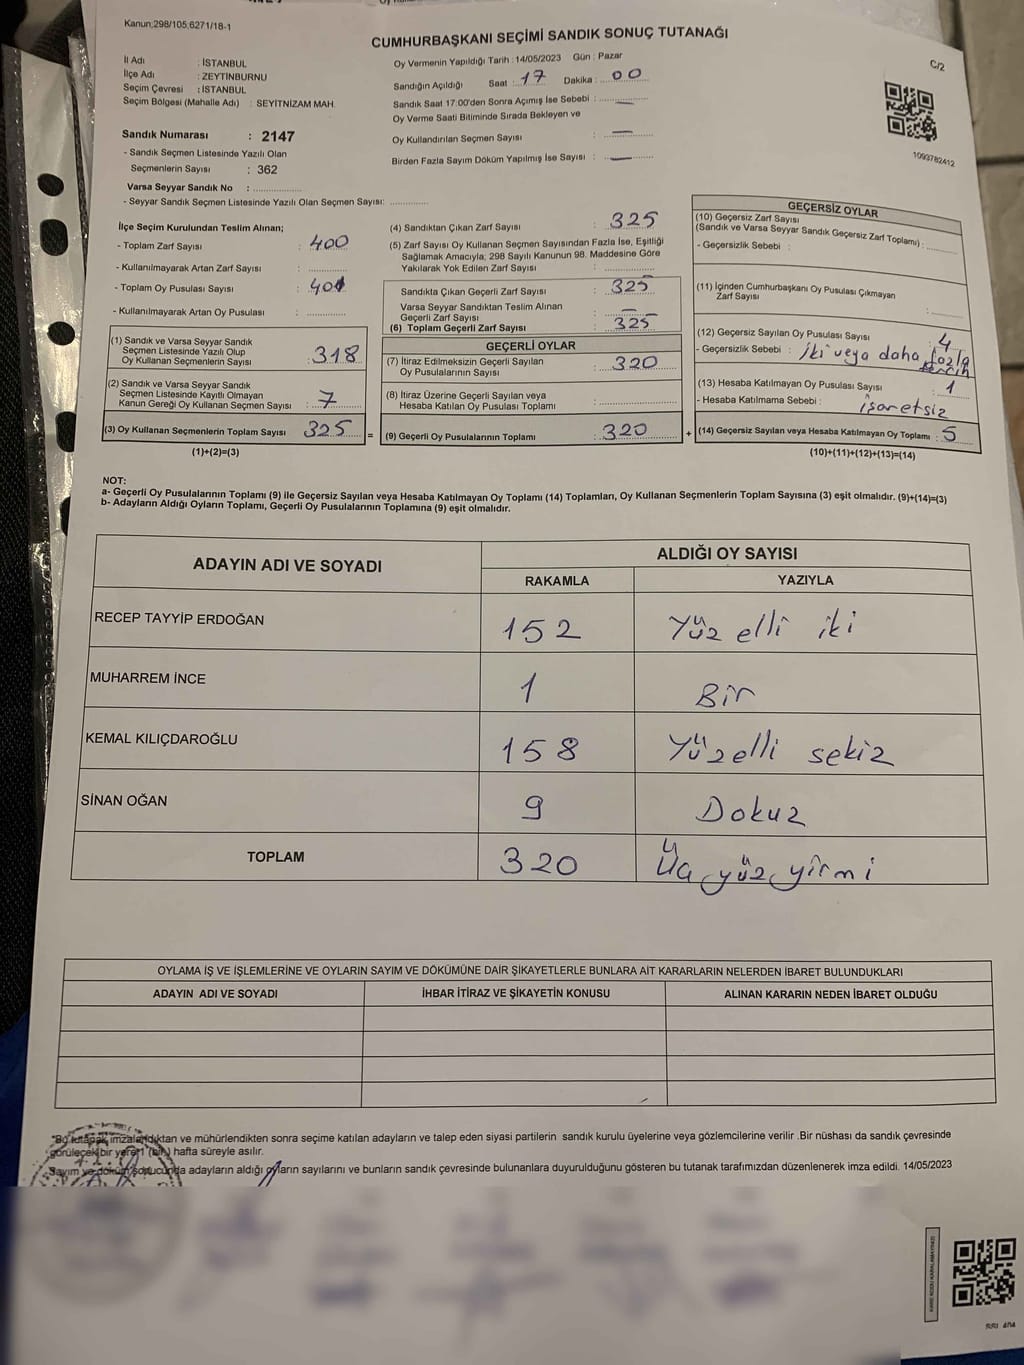 Kanun:298/105,6271/18-1
CUMHURBAŞKANI SEÇİMİ SANDIK SONUÇ TUTANAĞI
C/2
İl Adı : İSTANBUL
İlçe Adı : ZEYTİNBURNU
Seçim Çevresi : İSTANBUL
Seçim Bölgesi (Mahalle Adı) : SEYİTNİZAM MAH.
Sandık Numarası : 2147
- Sandık Seçmen Listesinde Yazılı Olan
Seçmenlerin Sayısı : 362
Varsa Seyyar Sandık No : ..............
- Seyyar Sandık Seçmen Listesinde Yazılı Olan Seçmen Sayısı: ..............
Oy Vermenin Yapıldığı Tarih : 14/05/2023 Gün : Pazar
Sandığın Açıldığı Saat : 17 Dakika : 00
Sandık Saat 17:00'den Sonra Açımış İse Sebebi : —
Oy Verme Saati Bitiminde Sırada Bekleyen ve
Oy Kullandırılan Seçmen Sayısı : —
Birden Fazla Sayım Döküm Yapılmış İse Sayısı : —
1093782412
İlçe Seçim Kurulundan Teslim Alınan;
- Toplam Zarf Sayısı : 400
- Kullanılmayarak Artan Zarf Sayısı : ..............
- Toplam Oy Pusulası Sayısı : 401
- Kullanılmayarak Artan Oy Pusulası : ..............
(1) Sandık ve Varsa Seyyar Sandık
Seçmen Listesinde Yazılı Olup
Oy Kullanan Seçmenlerin Sayısı : 318
(2) Sandık ve Varsa Seyyar Sandık
Seçmen Listesinde Kayıtlı Olmayan
Kanun Gereği Oy Kullanan Seçmen Sayısı : 7
(3) Oy Kullanan Seçmenlerin Toplam Sayısı 325
(1)+(2)=(3)
(4) Sandıktan Çıkan Zarf Sayısı : 325
(5) Zarf Sayısı Oy Kullanan Seçmen Sayısından Fazla İse, Eşitliği
Sağlamak Amacıyla; 298 Sayılı Kanunun 98. Maddesine Göre
Yakılarak Yok Edilen Zarf Sayısı : ..............
Sandıkta Çıkan Geçerli Zarf Sayısı : 325
Varsa Seyyar Sandıktan Teslim Alınan
Geçerli Zarf Sayısı : —
(6) Toplam Geçerli Zarf Sayısı : 325
GEÇERLİ OYLAR
(7) İtiraz Edilmeksizin Geçerli Sayılan
Oy Pusulalarının Sayısı : 320
(8) İtiraz Üzerine Geçerli Sayılan veya
Hesaba Katılan Oy Pusulası Toplamı : ..............
= (9) Geçerli Oy Pusulalarının Toplamı : 320
GEÇERSİZ OYLAR
(10) Geçersiz Zarf Sayısı
(Sandık ve Varsa Seyyar Sandık Geçersiz Zarf Toplamı) : ........
- Geçersizlik Sebebi :
(11) İçinden Cumhurbaşkanı Oy Pusulası Çıkmayan
Zarf Sayısı : ........
(12) Geçersiz Sayılan Oy Pusulası Sayısı : 4
- Geçersizlik Sebebi : İki veya daha fazla
tercih
(13) Hesaba Katılmayan Oy Pusulası Sayısı : 1
- Hesaba Katılmama Sebebi : işaretsiz
+ (14) Geçersiz Sayılan veya Hesaba Katılmayan Oy Toplamı : 5
(10)+(11)+(12)+(13)=(14)
NOT:
a- Geçerli Oy Pusulalarının Toplamı (9) ile Geçersiz Sayılan veya Hesaba Katılmayan Oy Toplamı (14) Toplamları, Oy Kullanan Seçmenlerin Toplam Sayısına (3) eşit olmalıdır. (9)+(14)=(3)
b- Adayların Aldığı Oyların Toplamı, Geçerli Oy Pusulalarının Toplamına (9) eşit olmalıdır.
ADAYIN ADI VE SOYADI ALDIĞI OY SAYISI
RAKAMLA YAZIYLA
RECEP TAYYİP ERDOĞAN 152 Yüz elli iki
MUHARREM İNCE 1 Bir
KEMAL KILIÇDAROĞLU 158 Yüzelli sekiz
SİNAN OĞAN 9 Dokuz
TOPLAM 320 Üç yüz yirmi
OYLAMA İŞ VE İŞLEMLERİNE VE OYLARIN SAYIM VE DÖKÜMÜNE DAİR ŞİKAYETLERLE BUNLARA AİT KARARLARIN NELERDEN İBARET BULUNDUKLARI
ADAYIN ADI VE SOYADI İHBAR İTİRAZ VE ŞİKAYETİN KONUSU ALINAN KARARIN NEDEN İBARET OLDUĞU
"Bu tutanak imzalandıktan ve mühürlendikten sonra seçime katılan adayların ve talep eden siyasi partilerin sandık kurulu üyelerine veya gözlemcilerine verilir .Bir nüshası da sandık çevresinde
görülecek bir yere 1 (bir) hafta süreyle asılır.
Sayım ve döküm sonucunda adayların aldığı oyların sayılarını ve bunların sandık çevresinde bulunanlara duyurulduğunu gösteren bu tutanak tarafımızdan düzenlenerek imza edildi. 14/05/2023
KARE KODU KARALAMAYINIZ!